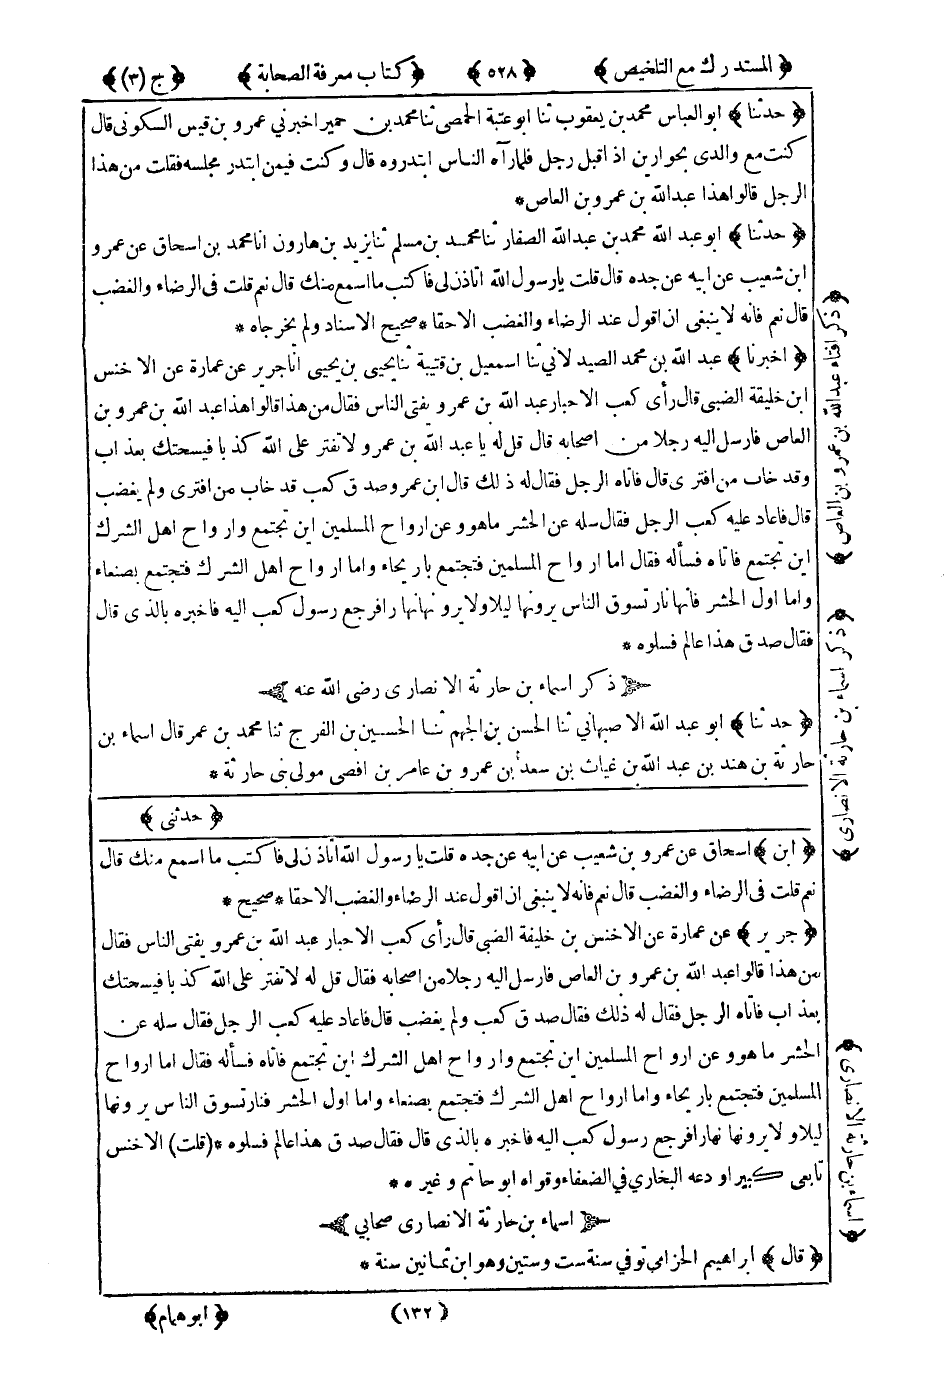 ﴿ المستدرك مع التلخيص ﴾ ﴿ ٥٢٨ ﴾ ﴿ كتاب معرفة الصحابة ﴾ ﴿ ج (٣) ﴾
﴿ حدثنا ﴾ ابو العباس محمد بن يعقوب ثنا ابو عتبة الحمصى ثنا محمد بن حمير اخبرني عمرو بن قيس السكونى قال
كنت مع والدى بحوارين اذ اقبل رجل فلما رآه الناس ابتدروه قال وكنت فيمن ابتدر مجلسه فقلت من هذا
الرجل قالوا هذا عبد الله بن عمرو بن العاص *
﴿ حدثنا ﴾ ابو عبد الله محمد بن عبد الله الصفار ثنا محمد بن مسلم ثنا يزيد بن هارون انا محمد بن اسحاق عن عمرو
ابن شعيب عن ابيه عن جده قال قلت يا رسول الله اتاذن لى فاكتب ما اسمع منك قال نعم قلت فى الرضاء والغضب
قال نعم فانه لا ينبغى ان اقول عند الرضاء والغضب الا حقا * صحيح الاسناد ولم يخرجاه *
﴿ اخبرنا ﴾ عبد الله بن محمد الصيدلاني ثنا اسمعيل بن قتيبة ثنا يحيى بن يحيى انا جرير عن عمارة عن الاخنس
ابن خليقة الضبى قال رأى كعب الاحبار عبد الله بن عمرو يفتى الناس فقال من هذا قالوا هذا عبد الله بن عمرو بن
العاص فارسل اليه رجلا من اصحابه قال قل له يا عبد الله بن عمرو لا تفتر على الله كذبا فيسحتك بعذاب
وقد خاب من افترى قال فاتاه الرجل فقال له ذلك قال ابن عمرو صدق كعب قد خاب من افترى ولم يغضب
قال فاعاد عليه كعب الرجل فقال سله عن الحشر ما هو وعن ارواح المسلمين اين تجتمع وارواح اهل الشرك
اين تجتمع فاتاه فسأله فقال اما ارواح المسلمين فتجتمع باريحاء واما ارواح اهل الشرك فتجتمع بصنعاء
واما اول الحشر فانها نار تسوق الناس يرونها ليلا ولا يرونها نهارا فرجع رسول كعب اليه فاخبره بالذى قال
فقال صدق هذا عالم فسلوه *
ذكر اسماء بن حارثة الانصارى رضى الله عنه
﴿ حدثنا ﴾ ابو عبد الله الاصبهاني ثنا الحسن بن الجهم ثنا الحسين بن الفرج ثنا محمد بن عمر قال اسماء بن
حارثة بن هند بن عبد الله بن غياث بن سعد بن عمرو بن عامر بن افصى مولى بنى حارثة *
﴿ حدثنى ﴾
﴿ ابن ﴾ اسحاق عن عمرو بن شعيب عن ابيه عن جده قلت يا رسول الله اتاذن لى فاكتب ما اسمع منك قال
نعم قلت فى الرضاء والغضب قال نعم فانه لا ينبغى ان اقول عند الرضاء والغضب الا حقا * صحيح *
﴿ جرير ﴾ عن عمارة عن الاخنس بن خليفة الضبى قال رأى كعب الاحبار عبد الله بن عمرو يفتى الناس فقال
من هذا قالوا عبد الله بن عمرو بن العاص فارسل اليه رجلا من اصحابه فقال قل له لا تفتر على الله كذبا فيسحتك
بعذاب فاتاه الرجل فقال له ذلك فقال صدق كعب ولم يغضب قال فاعاد عليه كعب الرجل فقال سله عن
الحشر ما هو وعن ارواح المسلمين اين تجتمع وارواح اهل الشرك اين تجتمع فاتاه فسأله فقال اما ارواح
المسلمين فتجتمع باريحاء واما ارواح اهل الشرك فتجتمع بصنعاء واما اول الحشر فنار تسوق الناس يرونها
ليلا ولا يرونها نهارا فرجع رسول كعب اليه فاخبره بالذى قال فقال صدق هذا عالم فسلوه * (قلت) الاخنس
تابعى كبير اودعه البخاري في الضعفاء وقواه ابو حاتم وغيره *
اسماء بن حارثة الانصارى صحابي
﴿ قال ﴾ ابراهيم الحزامي توفي سنة ست وستين وهو ابن ثمانين سنة *
(١٣٢) ﴿ ابو همام ﴾
﴿ ذكر افتاء عبد الله بن عمرو بن العاص ﴾
﴿ ذكر اسماء بن حارثة الانصارى ﴾
﴿ اسماء بن حارثة الانصارى ﴾